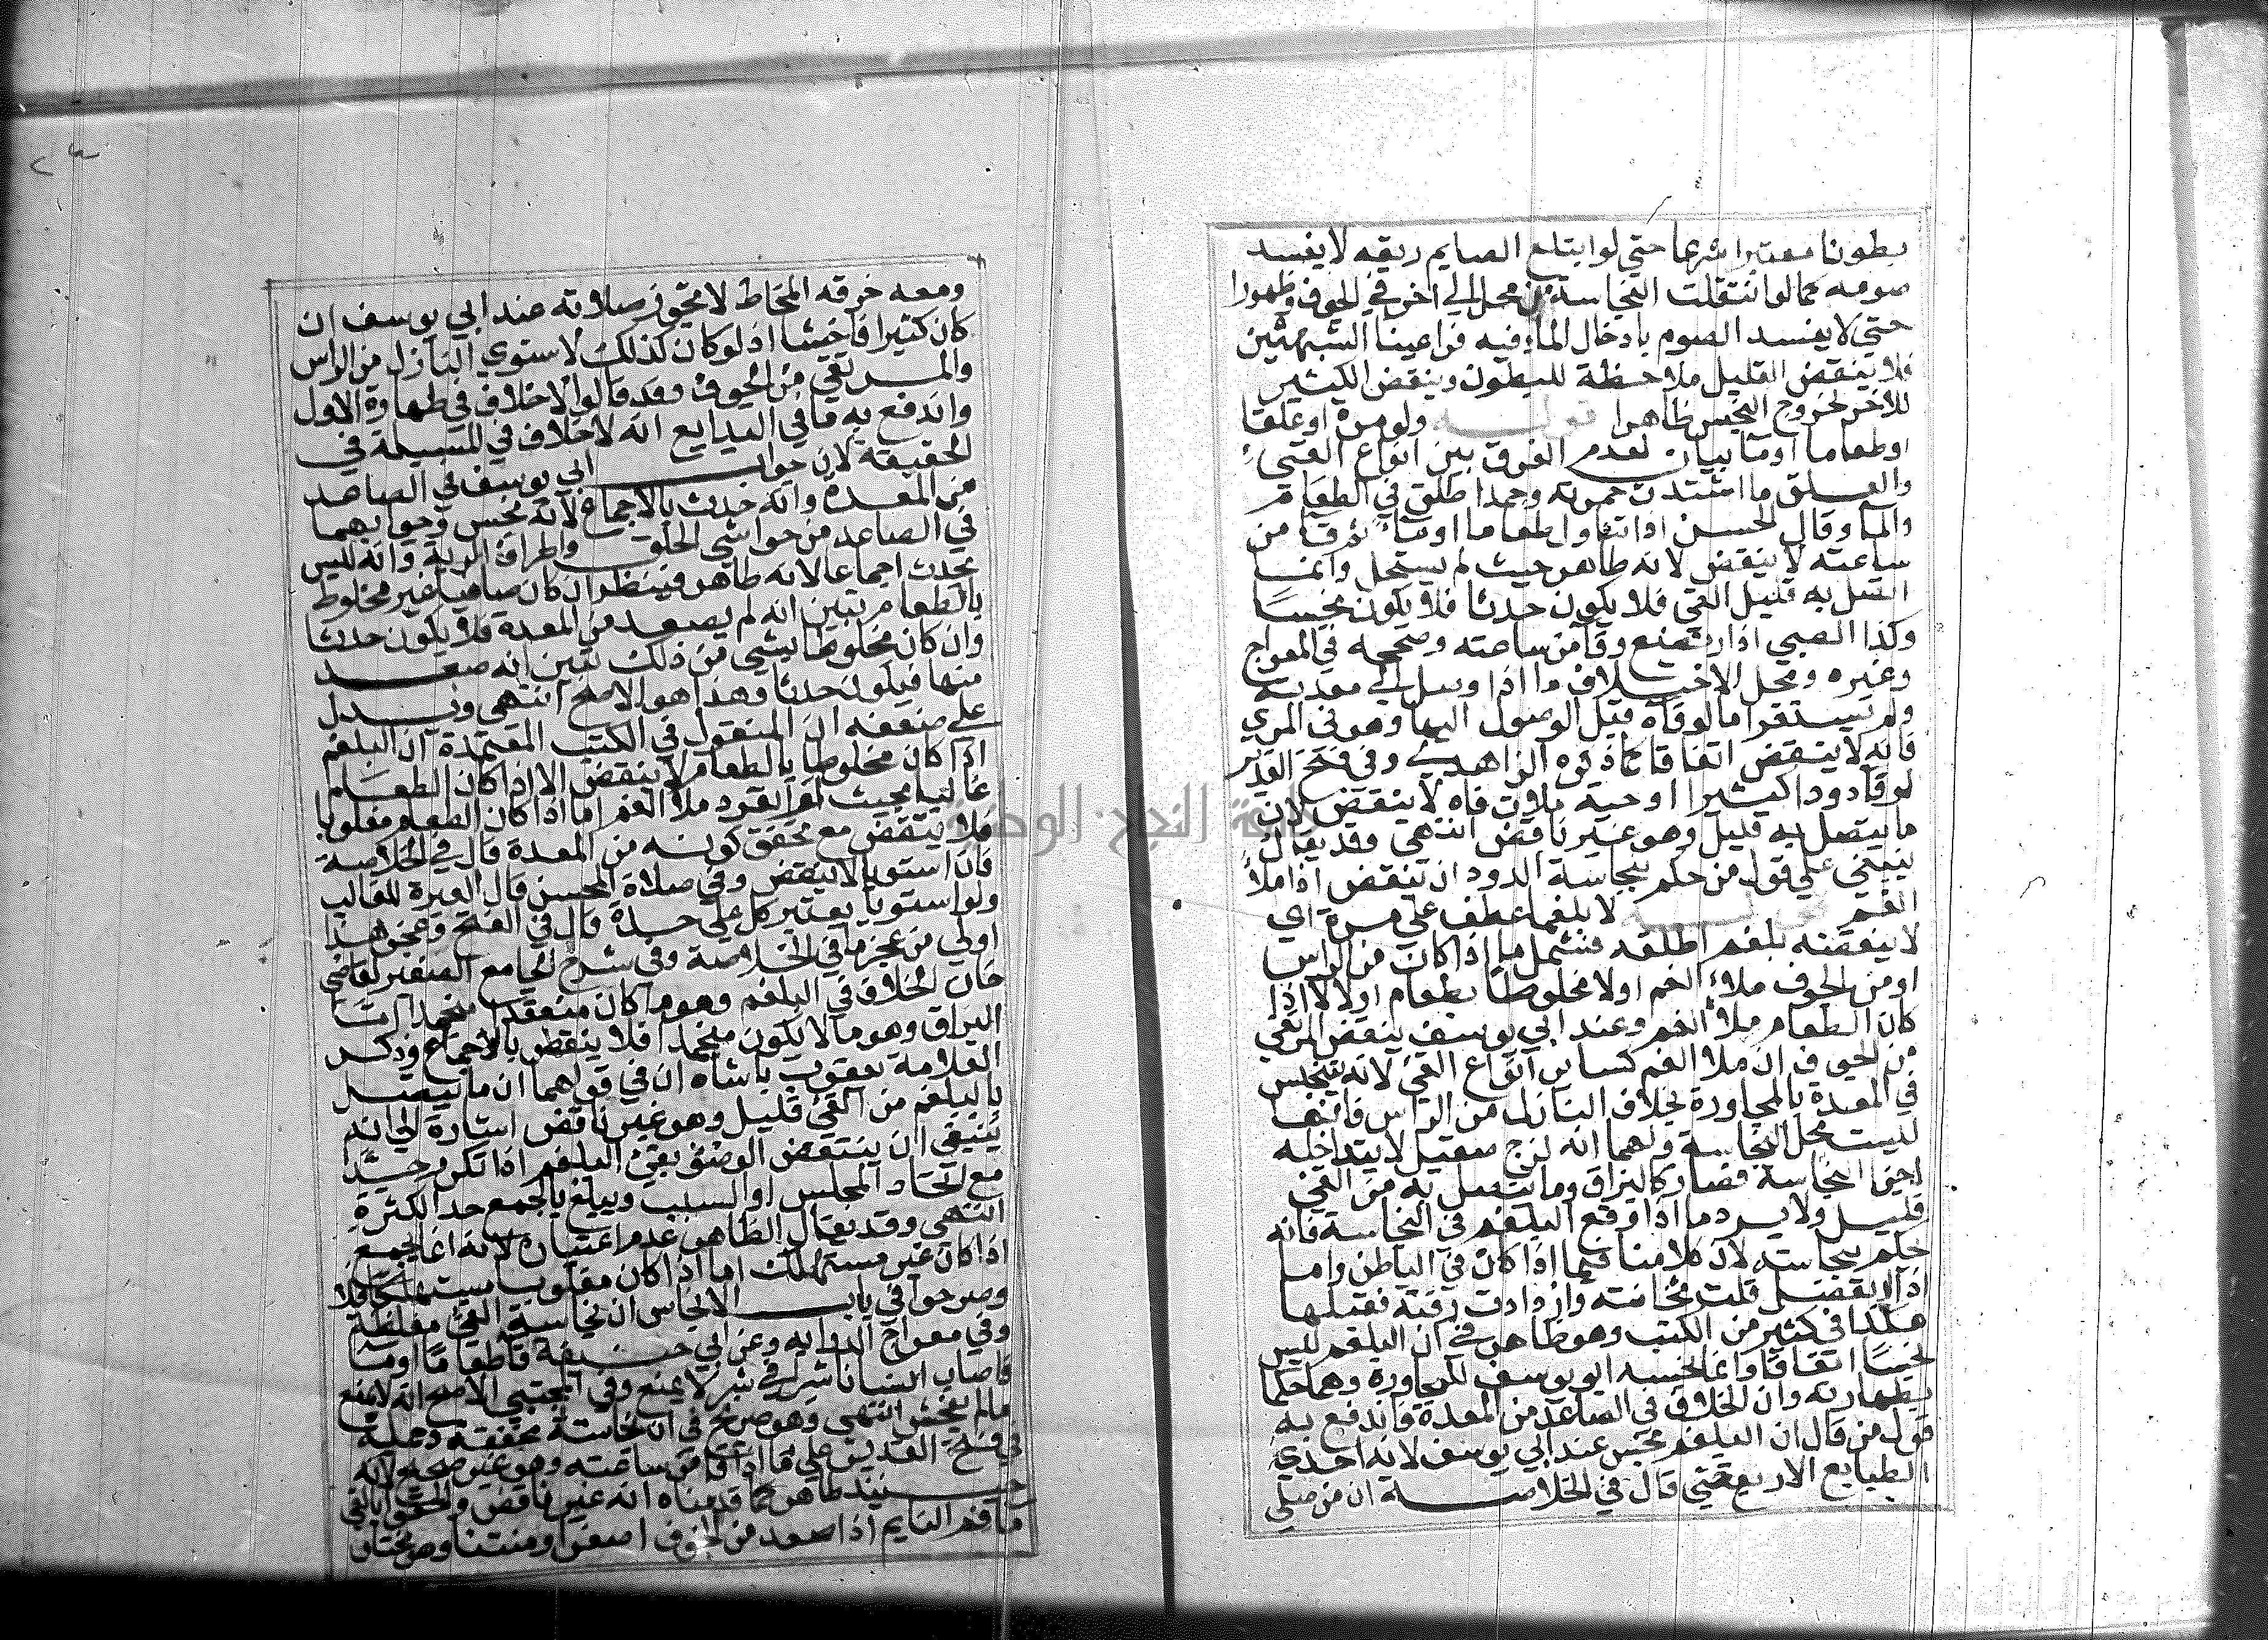 بطونا معتبرا شرعا حتى لو ابتلع الصايم ريقه لا يفسد
صومه كما لو انتقلت النجاسة من محل الي اخر في الجوف وظهورا
حتي لا يفسد الصوم بادخال الماء فيه فراعينا الشبهتين
فلا ينقض القليل ملاحظة للبطون وينقض الكثير
للاخر لخروج النجس ظاهرا قوله ولو مرة او علقا
او طعاما او ما بيان لعدم الفرق بين انواع القيء
والعلق ما اشتدت حمرته وجمد اطلق في الطعام
والما وقال الحسن اذا تناول طعاما او ما ثم قا من
ساعته لا ينقض لانه طاهر حيث لم يستحل وانما
اتصل به قليل القي فلا يكون حدثا فلا يكون نجسا
وكذا الصبي اذا ارتضع وقا من ساعته وصححه في المعراج
وغيره ومحل الاختلاف ما اذا وصل الي معدته
ولم يستقر اما لو قاه قبل الوصول اليها وهو في المري
فانه لا ينقض اتفاقا كما ذكره الزاهدي وفي فتح القدير
لو قا دودا كثيرا او حية ملات فاه لا ينقض لان
ما يتصل به قليل وهو غير ناقض انتهى وقد يقال
ينبغي علي قول من حكم بنجاسة الدود ان تنقض اذا ملأ
الفم قوله لا بلغما عطف علي مرة اي
لا ينقضه بلغم اطلقه فشمل ما اذا كان من الراس
او من الجوف ملأ الفم اولا مخلوطا بطعام اولا الا اذا
كان الطعام ملأ الفم وعند ابي يوسف ينقض المرتقي
من الجوف ان ملا الفم كساير انواع القئ لانه يتنجس
في المعدة بالمجاورة بخلاف النازل من الراس فانها
ليست محل النجاسة ولهما انه لزج صقيل لا يتداخله
اجزا النجاسة فصار كالبزاق وما يتصل به من القئ
قليل ولا يرد ما اذا وقع البلغم في النجاسة فانه
حكم بنجاسته لان كلامنا فيما اذا كان في الباطن واما
اذا انفصل قلت ثخانته وازدادت رقته فقبلها
هكذا في كثير من الكتب وهو ظاهر في ان البلغم ليس
نجسا اتفاقا وانما نجسه ابو يوسف للمجاورة وهما حكما
بطهارته وان الخلاف في الصاعد من المعدة فاندفع به
قول من قال ان البلغم نجس عند ابي يوسف لانه احدي
الطبايع الاربع حتي قال في الخلاصة ان من صلي
ومعه خرقه المخاط لا تجوز صلاته عند ابي يوسف ان
كان كثيرا فاحشا اذ لو كان كذلك لاستوي النازل من الراس
والمرتقي من الجوف وقد قالوا لا خلاف في طهارة الاول
واندفع به ما في البدايع انه لا خلاف في المسيلة في
الحقيقة لان جواب ابي يوسف في الصاعد
من المعدة وانه حدث بالاجماع لانه نجس وجوابهما
في الصاعد من حواشي الحلق واطراف الرية وانه ليس
بحدث اجماعا لانه طاهر فينظر ان كان صافيا غير مخلوط
بالطعام تبين انه لم يصعد من المعدة فلا يكون حدثا
وان كان مخلوطا بشي من ذلك تبين انه صعد
منها فيكون حدثا وهذا هو الاصح انتهى ويدل
علي ضعفه ان المنقول في الكتب المعتمدة ان البلغم
اذا كان مخلوطا بالطعام لا ينقض الا اذا كان الطعام
غالبا بحيث لو انفرد ملأ الفم اما اذا كان الطعام مغلوبا
فلا ينقض مع تحقق كونه من المعدة قال في الخلاصة
فان استويا لا ينقض وفي صلاة المحسن قال العبرة للغالب
ولو استويا يعتبر كل علي حدة قال في الفتح وعجز هذا
اولي من عجز ما في الخلاصة وفي شرح الجامع الصغير لقاضي
خان الخلاف في البلغم وهو ما كان منعقدا منجمدا اما
البزاق وهو ما لا يكون منجمدا فلا ينقض بالاجماع وذكر
العلامة يعقوب باشاه ان في قولهما ان ما يتصل
بالبلغم من القئ قليل وهو غير ناقض اشارة الي انه
ينبغي ان ينتقض الوضوء بقئ البلغم اذا تكرر حينئذ
مع اتحاد المجلس او السبب ويبلغ بالجمع حد الكثرة
انتهى وقد يقال الظاهر عدم اعتباره لانه انما يجمع
اذا كان غير مستهلك اما اذا كان مغلوبا مستهلكا فلا
وصرحوا في باب الانجاس ان نجاسة القئ مغلظة
وفي معراج الدرايه وعن ابي حنيفة قا طعاما او ما
فاصاب انسانا شبرا في شبر لا يمنع وفي المجتبي الاصح انه لا يمنع
ما لم يفحش انتهى وهو صريح في ان نجاسته مخففه وحمله
في فتح القدير علي ما اذا قا من ساعته وهو غير صحيح لانه
حينئذ طاهر كما قدمناه انه غير ناقض والحقوا بالقي
ما فم النايم اذا صعد من الجوف اصفر او منتنا وهو مختار